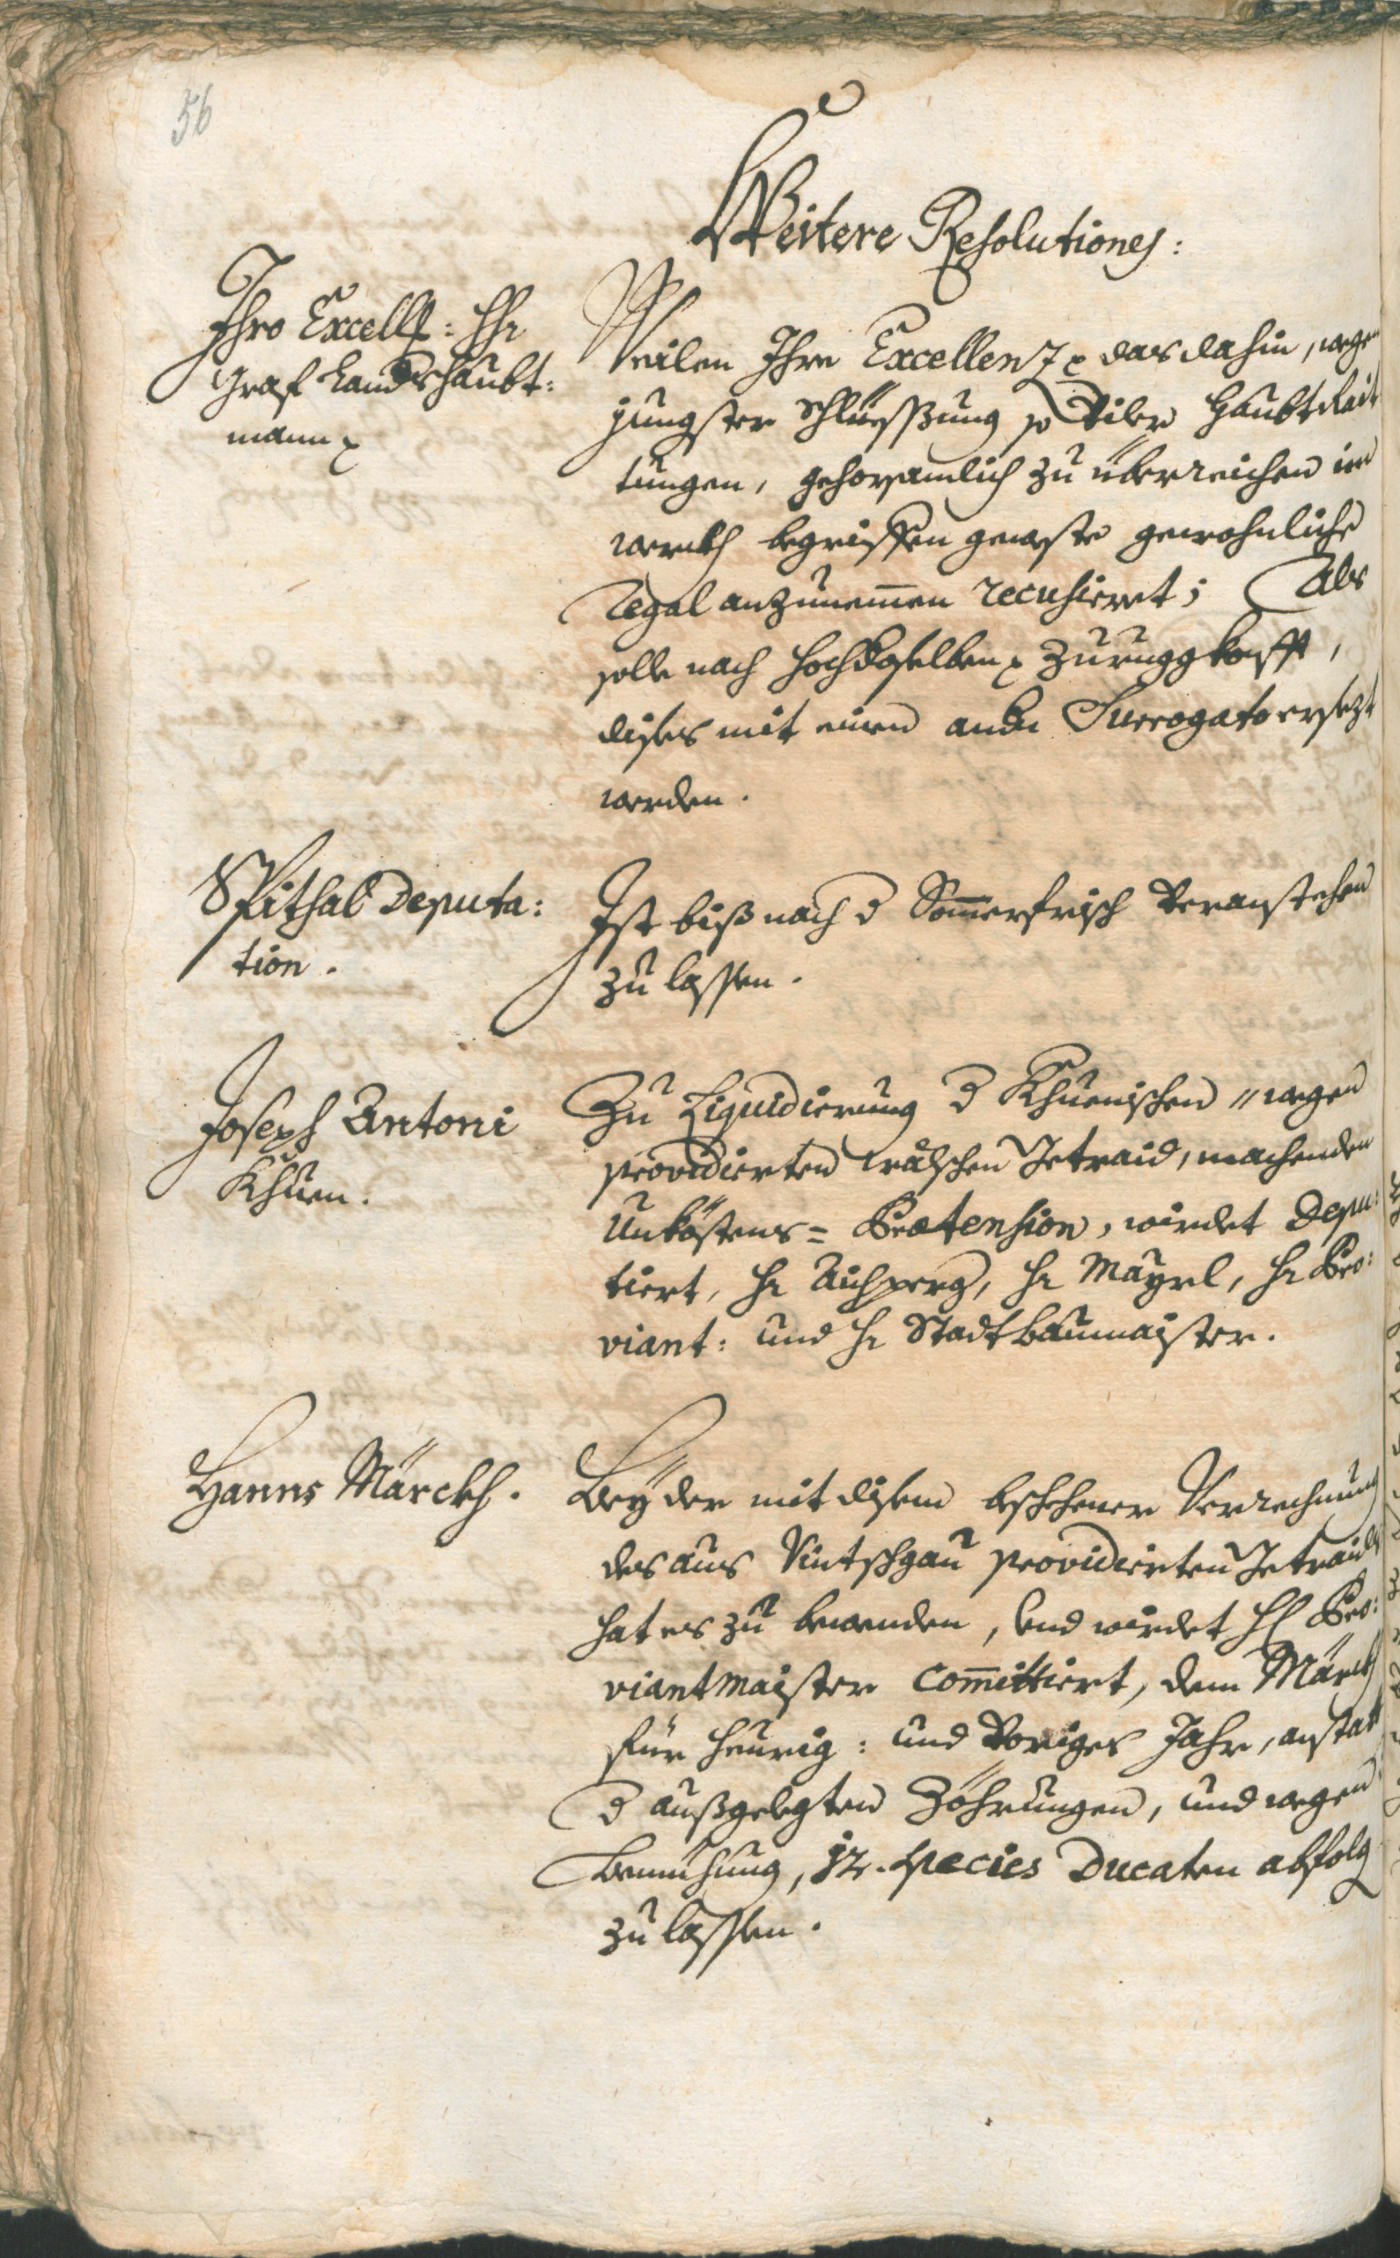 56
Weitere Resolutiones:
Ihro Excellz: Hr
Graf Landtshaubt:
mann
Weilen Ihre Excellenz das dahin, wegen
jüngster Schlüessßung so viler Haubtrait
tungen, gehorsamlich zu überreichen im
werckh begriffen geweste gewohnliche
Regal anzunemen recusieret; Als
solle nach hochdeselben zuruggkonfft,
dises mit einen andn Surrogato ersezt
werden.
Spithal Deputa:
tion.
Ist biß nach d Sommerfrisch veranstehen
zu lassen.
Joseph Antoni
Khuen.
Zu Liquidierung d Khuenischen wegen
providierten wälschen Getraid, machenden
Unkösstens= Praetension, wirdet depu:
tiert, Hr Aichperg, Hr Mayrl, Hr Pro:
viant: und Hr Stadtbaumaister.
Hanns Märckh.
Bey der mit disem beschehener Verrechnung
des aus Vintschgau providierten Getraids
hat es zu bewenden, und wirdet H Pro:
viantmaister committiert, dem Märckh
für heurig: und voriges Jahr, anstatt
d außgelegten Zöhrungen, und wegen
Bemühung, 12. species Ducaten abfolg
zu lassen.